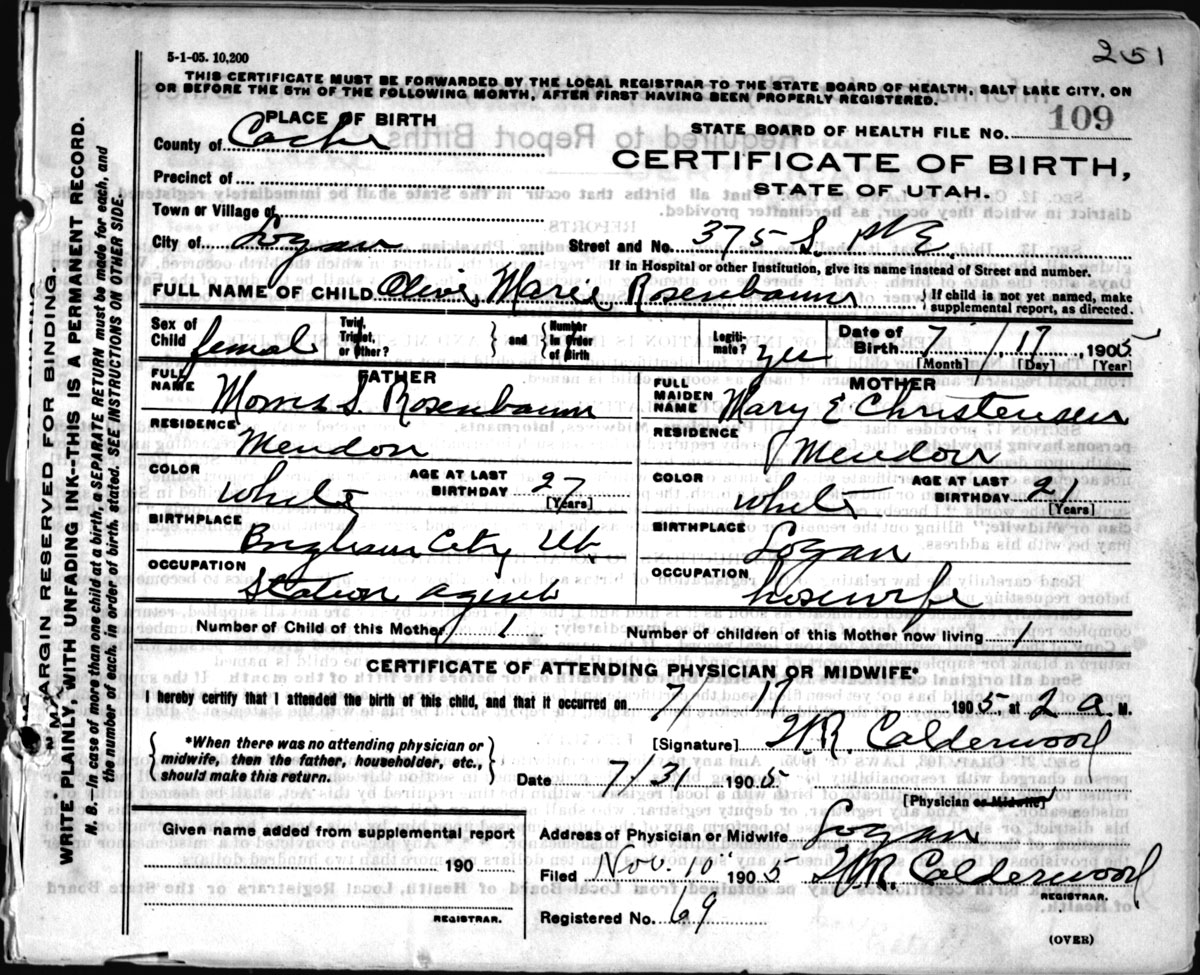 251
5-1-05. 10,200
THIS CERTIFICATE MUST BE FORWARDED BY THE LOCAL REGISTRAR TO THE STATE BOARD OF HEALTH, SALT LAKE CITY, ON
OR BEFORE THE 5TH OF THE FOLLOWING MONTH, AFTER FIRST HAVING BEEN PROPERLY REGISTERED.
PLACE OF BIRTH
STATE BOARD OF HEALTH FILE NO. 109
County of Cache
CERTIFICATE OF BIRTH,
Precinct of
STATE OF UTAH.
Town or Village of
City of Logan Street and No. 375 S. 1st E
If in Hospital or other Institution, give its name instead of Street and number.
FULL NAME OF CHILD Olive Marie Rosenbaum { If child is not yet named, make supplemental report, as directed.
Sex of Child female Twin, Triplet, or Other? { and } Number in Order of Birth Legiti- mate? yes Date of Birth 7 / 17, 1905
[Month] [Day] [Year]
FATHER
FULL NAME Morris S. Rosenbaum
RESIDENCE Mendon
COLOR White AGE AT LAST BIRTHDAY 27 [Years]
BIRTHPLACE Brigham City Ut
OCCUPATION Station agent
MOTHER
FULL MAIDEN NAME Mary E Christensen
RESIDENCE Mendon
COLOR White AGE AT LAST BIRTHDAY 21 [Years]
BIRTHPLACE Logan
OCCUPATION hosewife
Number of Child of this Mother 1 Number of children of this Mother now living 1
CERTIFICATE OF ATTENDING PHYSICIAN OR MIDWIFE*
I hereby certify that I attended the birth of this child, and that it occurred on 7 17 1905, at 2 a M.
{ *When there was no attending physician or
midwife, then the father, householder, etc.,
should make this return. }
[Signature] W.R. Calderwood
Date 7/31 1905
[Physician or Midwife]
Given name added from supplemental report
190
REGISTRAR.
Address of Physician or Midwife Logan
Filed Nov. 10 1905 W.R. Calderwood
REGISTRAR.
Registered No. 69
(OVER)
MARGIN RESERVED FOR BINDING.
WRITE PLAINLY, WITH UNFADING INK--THIS IS A PERMANENT RECORD.
N. B.--In case of more than one child at a birth, a SEPARATE RETURN must be made for each, and
the number of each, in order of birth, stated. SEE INSTRUCTIONS ON OTHER SIDE.